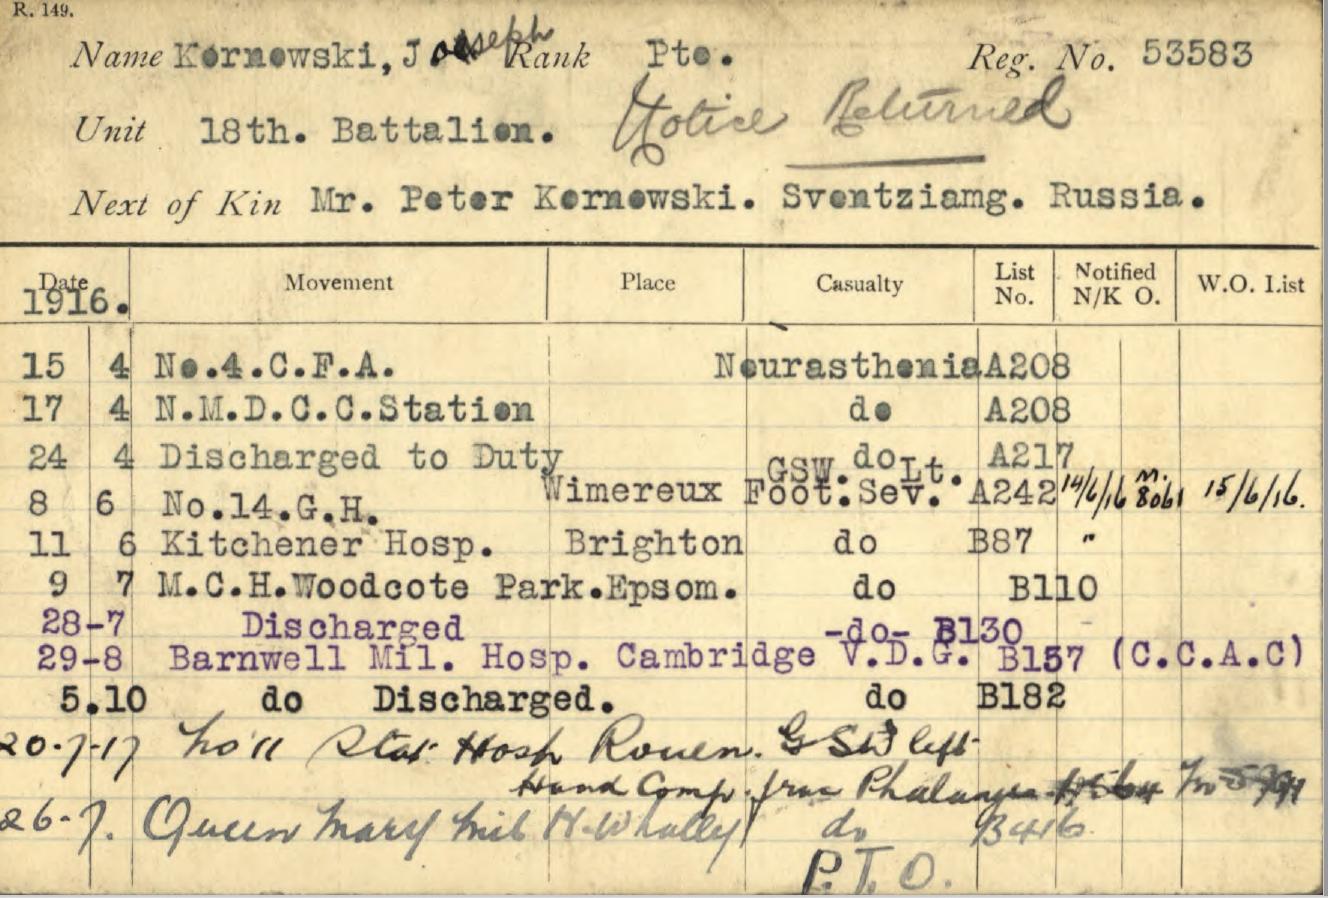 R. 149.
Name Kernewski, Joseph Rank Pte. Reg. No. 53583
Unit 18th. Battalion. Notice Returned
Next of Kin Mr. Peter Kernewski. Sventziamg. Russia.
Date Movement Place Casualty List No. Notified N/K O. W.O. List
1916.
15 4 No.4.C.F.A. Neurasthenia A208
17 4 N.M.D.C.C.Station do A208
24 4 Discharged to Duty do A217
8 6 No.14.G.H. Wimereux GSW. Lt. Foot.Sev. A242 14/6/16 M. 8061 15/6/16.
11 6 Kitchener Hosp. Brighton do B87 "
9 7 M.C.H.Woodcote Park.Epsom. do B110
28-7 Discharged -do- B130
29-8 Barnwell Mil. Hosp. Cambridge V.D.G. B157 (C.C.A.C)
5.10 do Discharged. do B182
20-7-17 No 11 Stat Hosp Rouen. GSW left
Hand Comp. frac Phalanges
26-7. Queen Mary Mil H. Whally do B416
P.T.O.